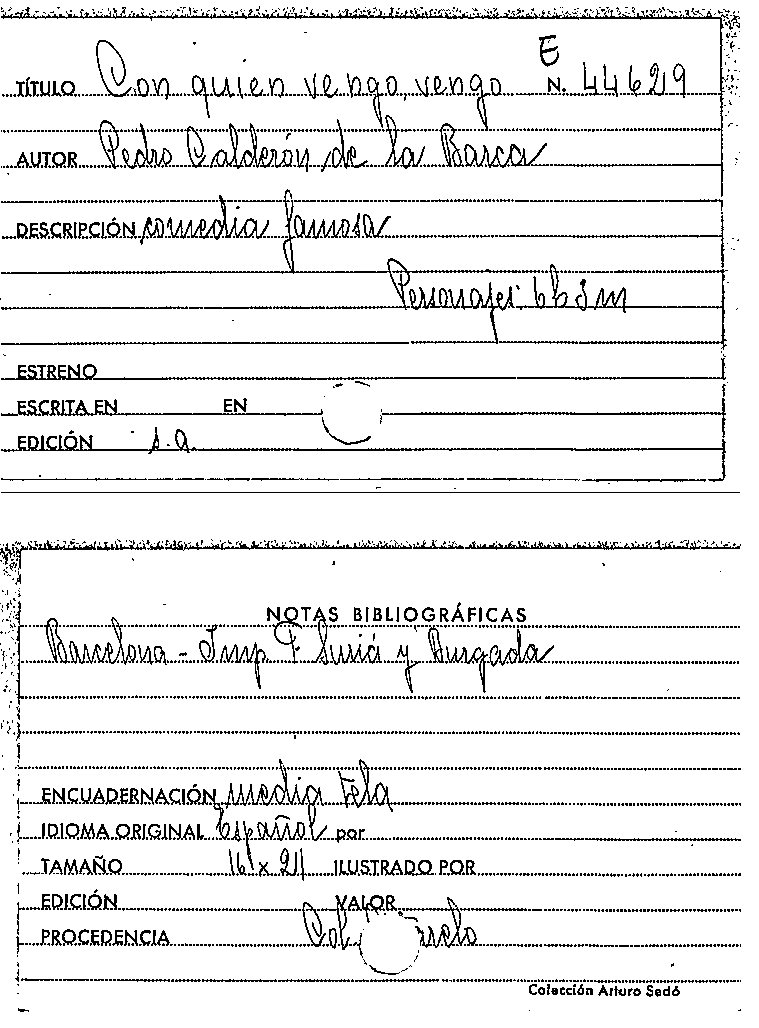 E
TÍTULO Con quien vengo, vengo N. 44629
AUTOR Pedro Calderón de la Barca
DESCRIPCIÓN comedia famosa
Personajes: 6h 3m
ESTRENO
ESCRITA EN EN
EDICIÓN s.a.
NOTAS BIBLIOGRÁFICAS
Barcelona - Imp F Suriá y Burgada
ENCUADERNACIÓN media tela
IDIOMA ORIGINAL Español por
TAMAÑO 16 x 21 ILUSTRADO POR
EDICIÓN VALOR
PROCEDENCIA Col
Colección Arturo Sedó